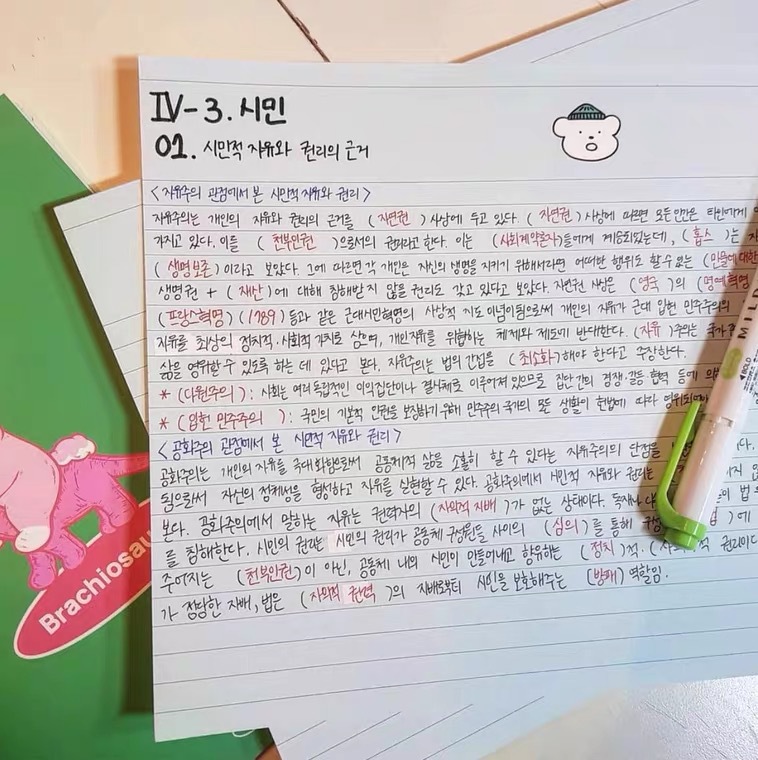 IV-3. 시민
01. 시민적 자유와 권리의 근거
<자유주의 관점에서 본 시민적 자유와 권리>
자유주의는 개인의 자유와 권리의 근거를 (자연권) 사상에 두고 있다. (자연권) 사상에 따르면 모든 인간은 타인에게
가지고 있다. 이를 (천부인권)으로서의 권리라고 한다. 이는 (사회계약론자)들에게 계승되었는데, (홉스)는
(생명보존)이라고 보았다. 그에 따르면 각 개인은 자신의 생명을 지키기 위해서라면 어떠한 행위도 할 수 있는 (만물에 대한
생명권 + (재산)에 대해 침해받지 않을 권리도 갖고 있다고 보았다. 자연권 사상은 (영국)의 (명예혁명
(프랑스혁명)(1789)등과 같은 근대시민혁명의 사상적 지도 이념이됨으로써 개인의 자유가 근대 입헌 민주주의의
자유를 최상의 정치적·사회적 가치로 삼으며, 개인 자유를 위협하는 체제와 제도에 반대한다. (자유)주의는 국가
삶을 영위할 수 있도록 하는 데 있다고 본다. 자유주의는 법의 간섭을 (최소화)해야 한다고 주장한다.
* (다원주의): 사회는 여러 독립적인 이익집단이나 결사체로 이루어져 있으므로 집단 간의 경쟁·갈등·협력 등에 의
* (입헌 민주주의): 국민의 기본적 인권을 보장하기 위해 민주주의 국가의 모든 생활이 헌법에 따라 영위되어야
<공화주의 관점에서 본 시민적 자유와 권리>
공화주의는 개인의 자유를 극대화함으로써 공동체적 삶을 소홀히 할 수 있다는 자유주의의 단점을
됨으로써 자신의 정체성을 형성하고 자유를 실현할 수 있다. 공화주의에서 시민적 자유와 권리는
본다. 공화주의에서 말하는 자유는 권력자의 (자의적 지배)가 없는 상태이다. 독재자나
를 침해한다. 시민의 권리는 시민의 권리가 공동체 구성원들 사이의 (심의)를 통해
주어지는 (천부인권)이 아닌, 공동체 내의 시민이 만들어내고 향유하는 (정치)적·(사회)적 권리이다
가 정당한 지배, 법은 (자의적 권력)의 지배로부터 시민을 보호해주는 (방패) 역할임.
Brachiosau
MILD